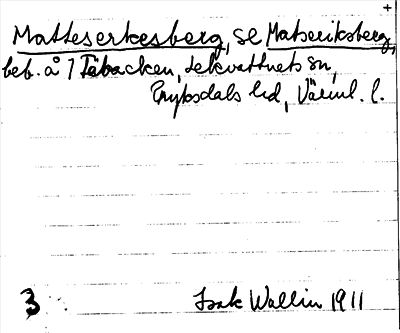 +
Matteserkesberg, se Matseriksberg,
beb. å 7 Täbacken, Lekvattnets sn,
Fryksdals hd, Värml. l.
3 Isak Wallin 1911